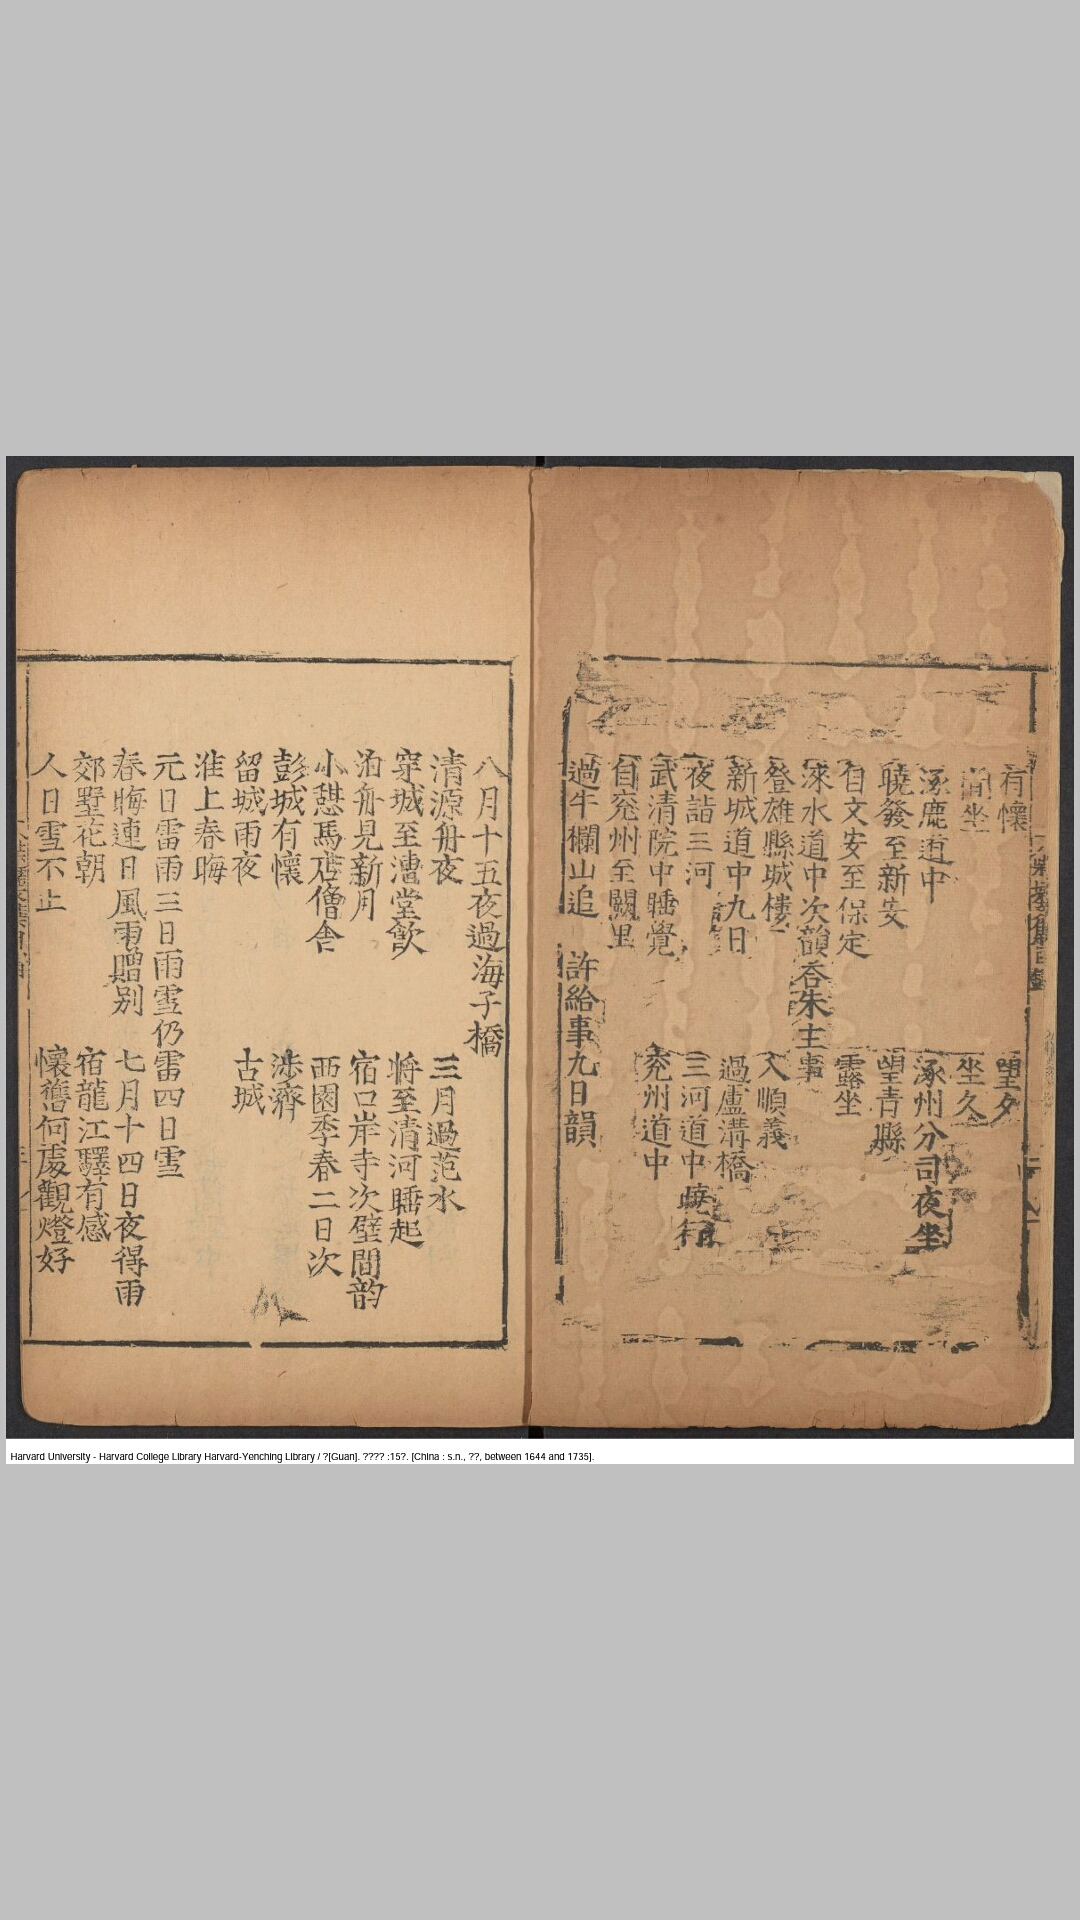 有懷　望夕
簡坐　坐久
涿鹿道中　涿州分司夜坐
曉發至新安　望青縣
自文安至保定　露坐
淶水道中次韻荅朱主事
登雄縣城樓　入順義
新城道中九日　過盧溝橋
夜詣三河　三河道中曉行
武清院中睡覺　兖州道中
自兖州至闕里
過牛欄山追　許給事九日韻
八月十五夜過海子橋
清源舟夜　三月過范水
穿城至漕堂飲　將至清河睡起
泊舟見新月　宿口岸寺次壁間韵
小憩馬店僧舍　西園季春二日次
彭城有懷　涉濟
留城雨夜　古城
淮上春晦
元日雷雨三日雨雪仍雷四日雪
春晦連日風雨贈别　七月十四日夜得雨
郊墅花朝　宿龍江驛有感
人日雪不止　懷舊何處觀燈好
Harvard University - Harvard College Library Harvard-Yenching Library / ?[Guan]. ???? :15?. [China : s.n., ??, between 1644 and 1735].